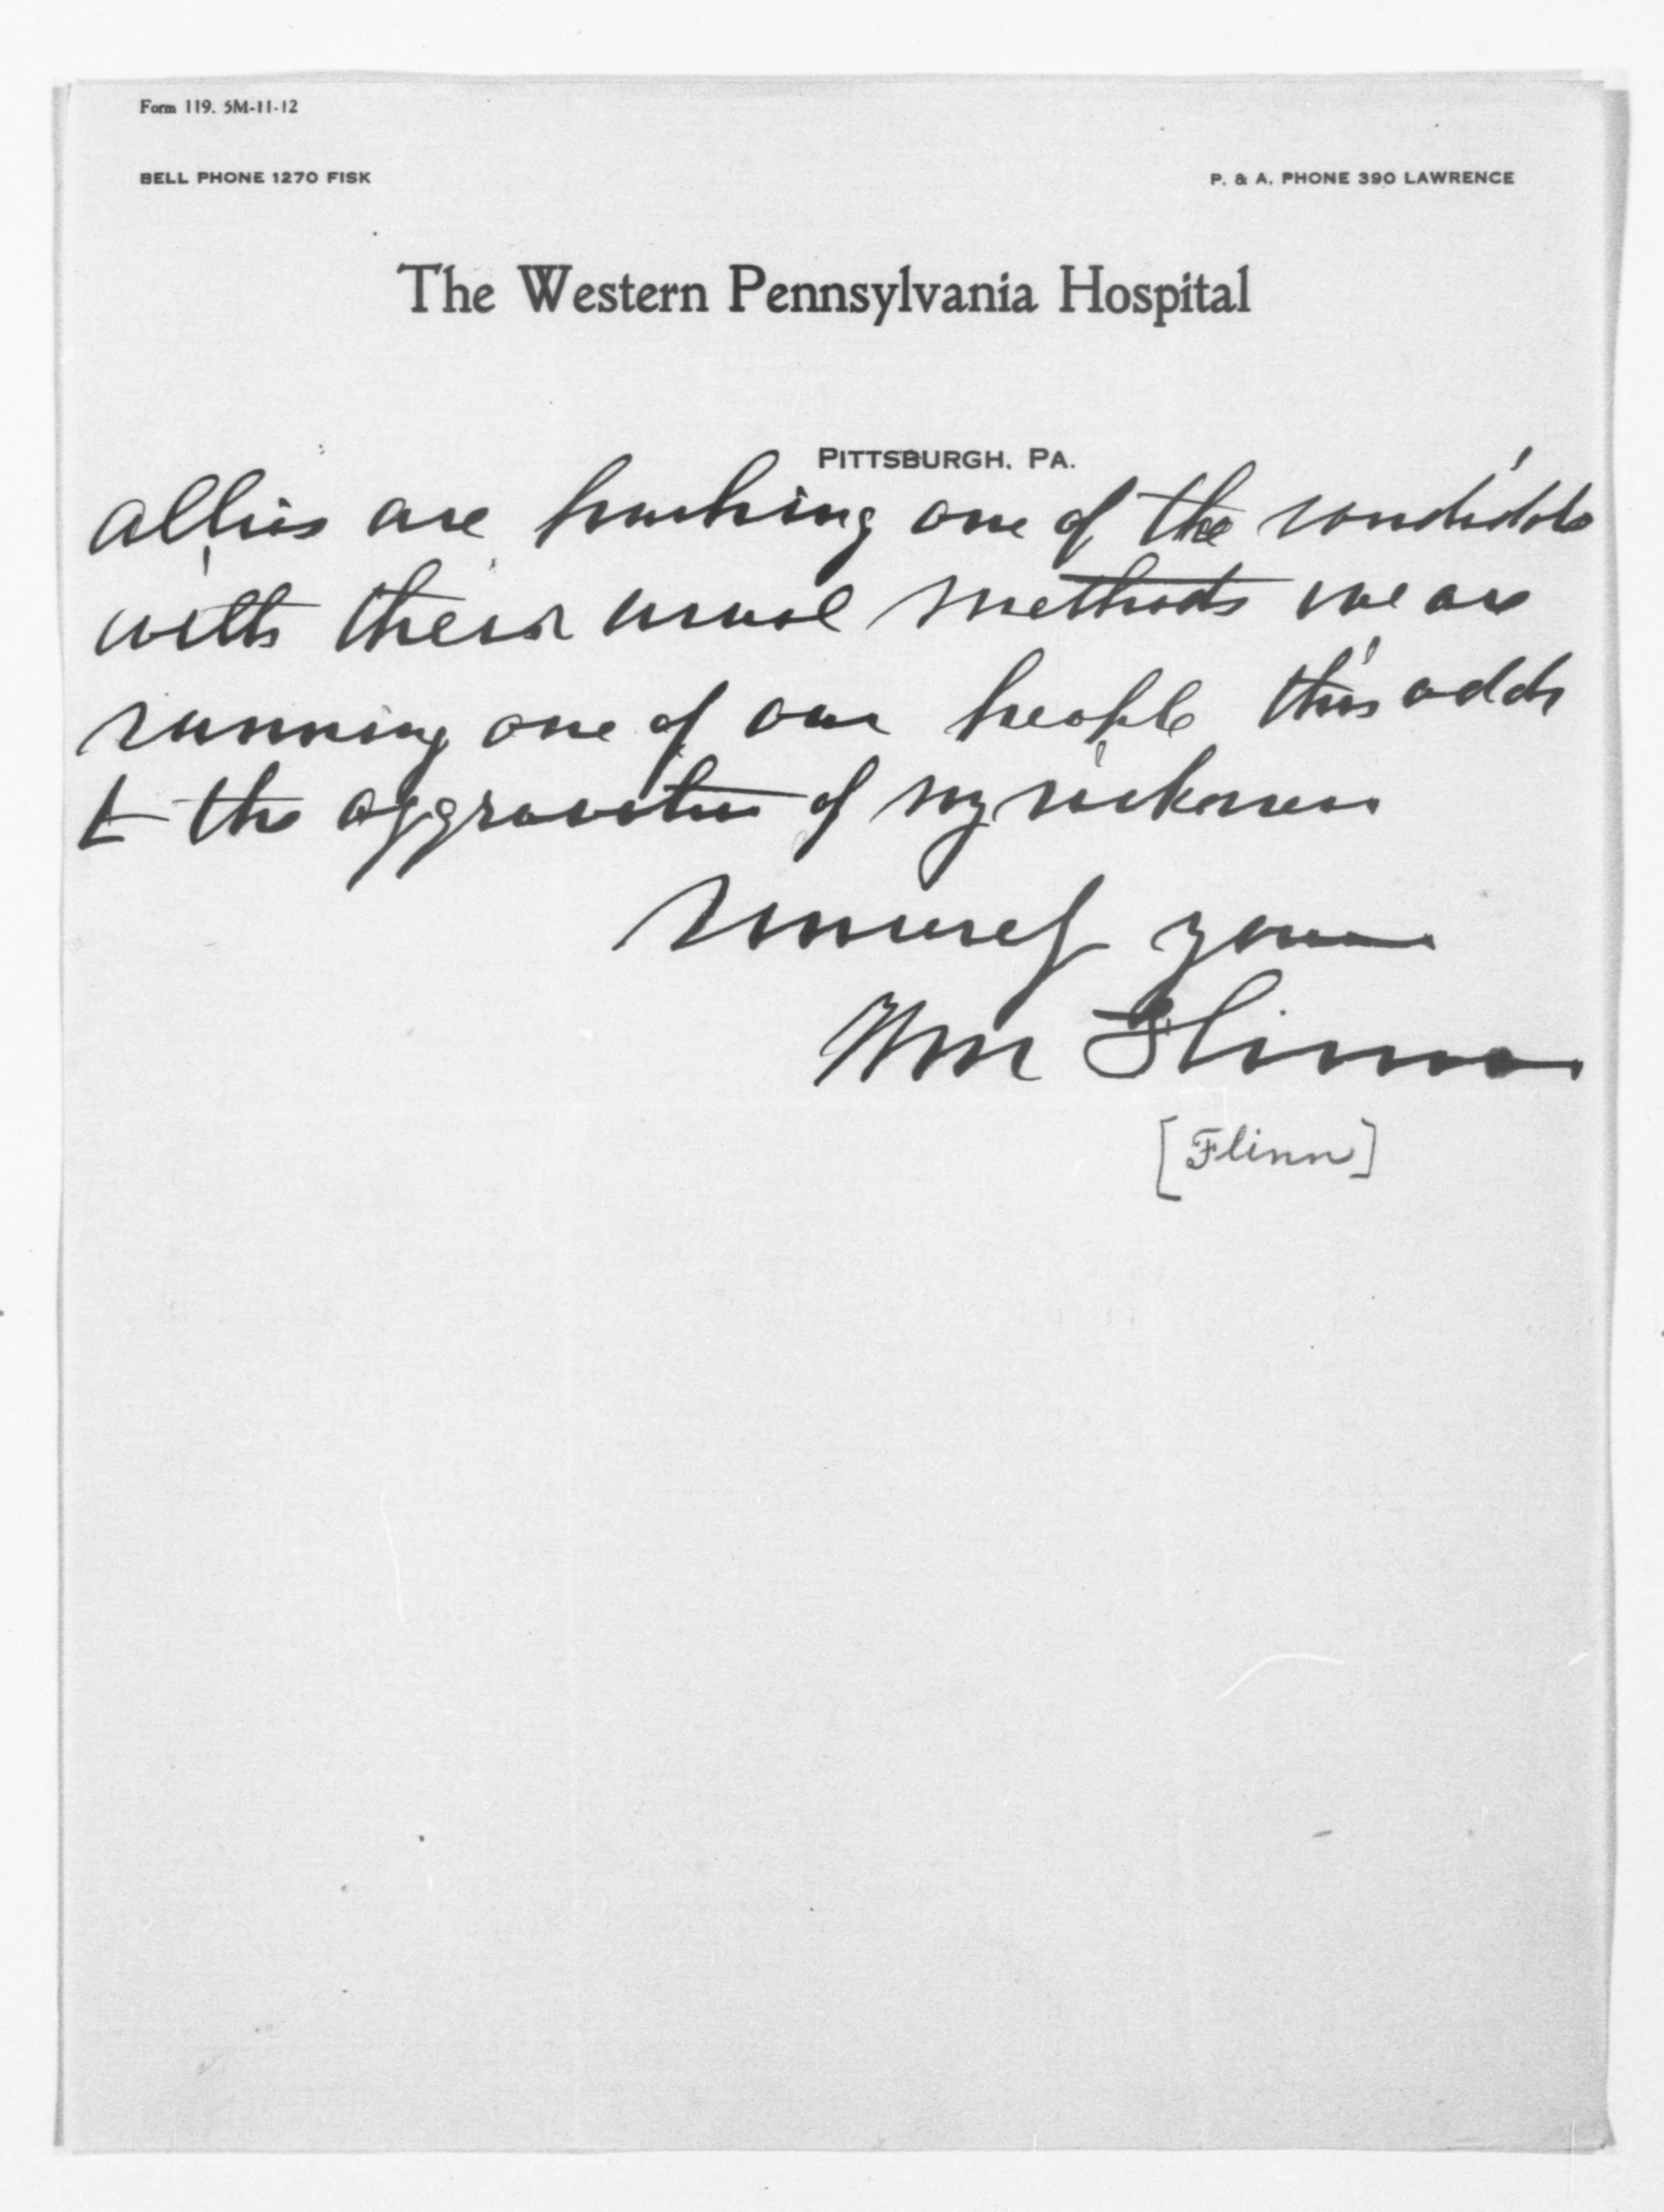 Form 119. 5M-11-12
BELL PHONE 1270 FISK
P. & A. PHONE 390 LAWRENCE
The Western Pennsylvania Hospital
PITTSBURGH, PA.
allies are pushing one of the candidates
with their usual methods we are
running one of our people this adds
to the aggravation of my sickness
Sincerely yours
Wm Flinn
[Flinn]